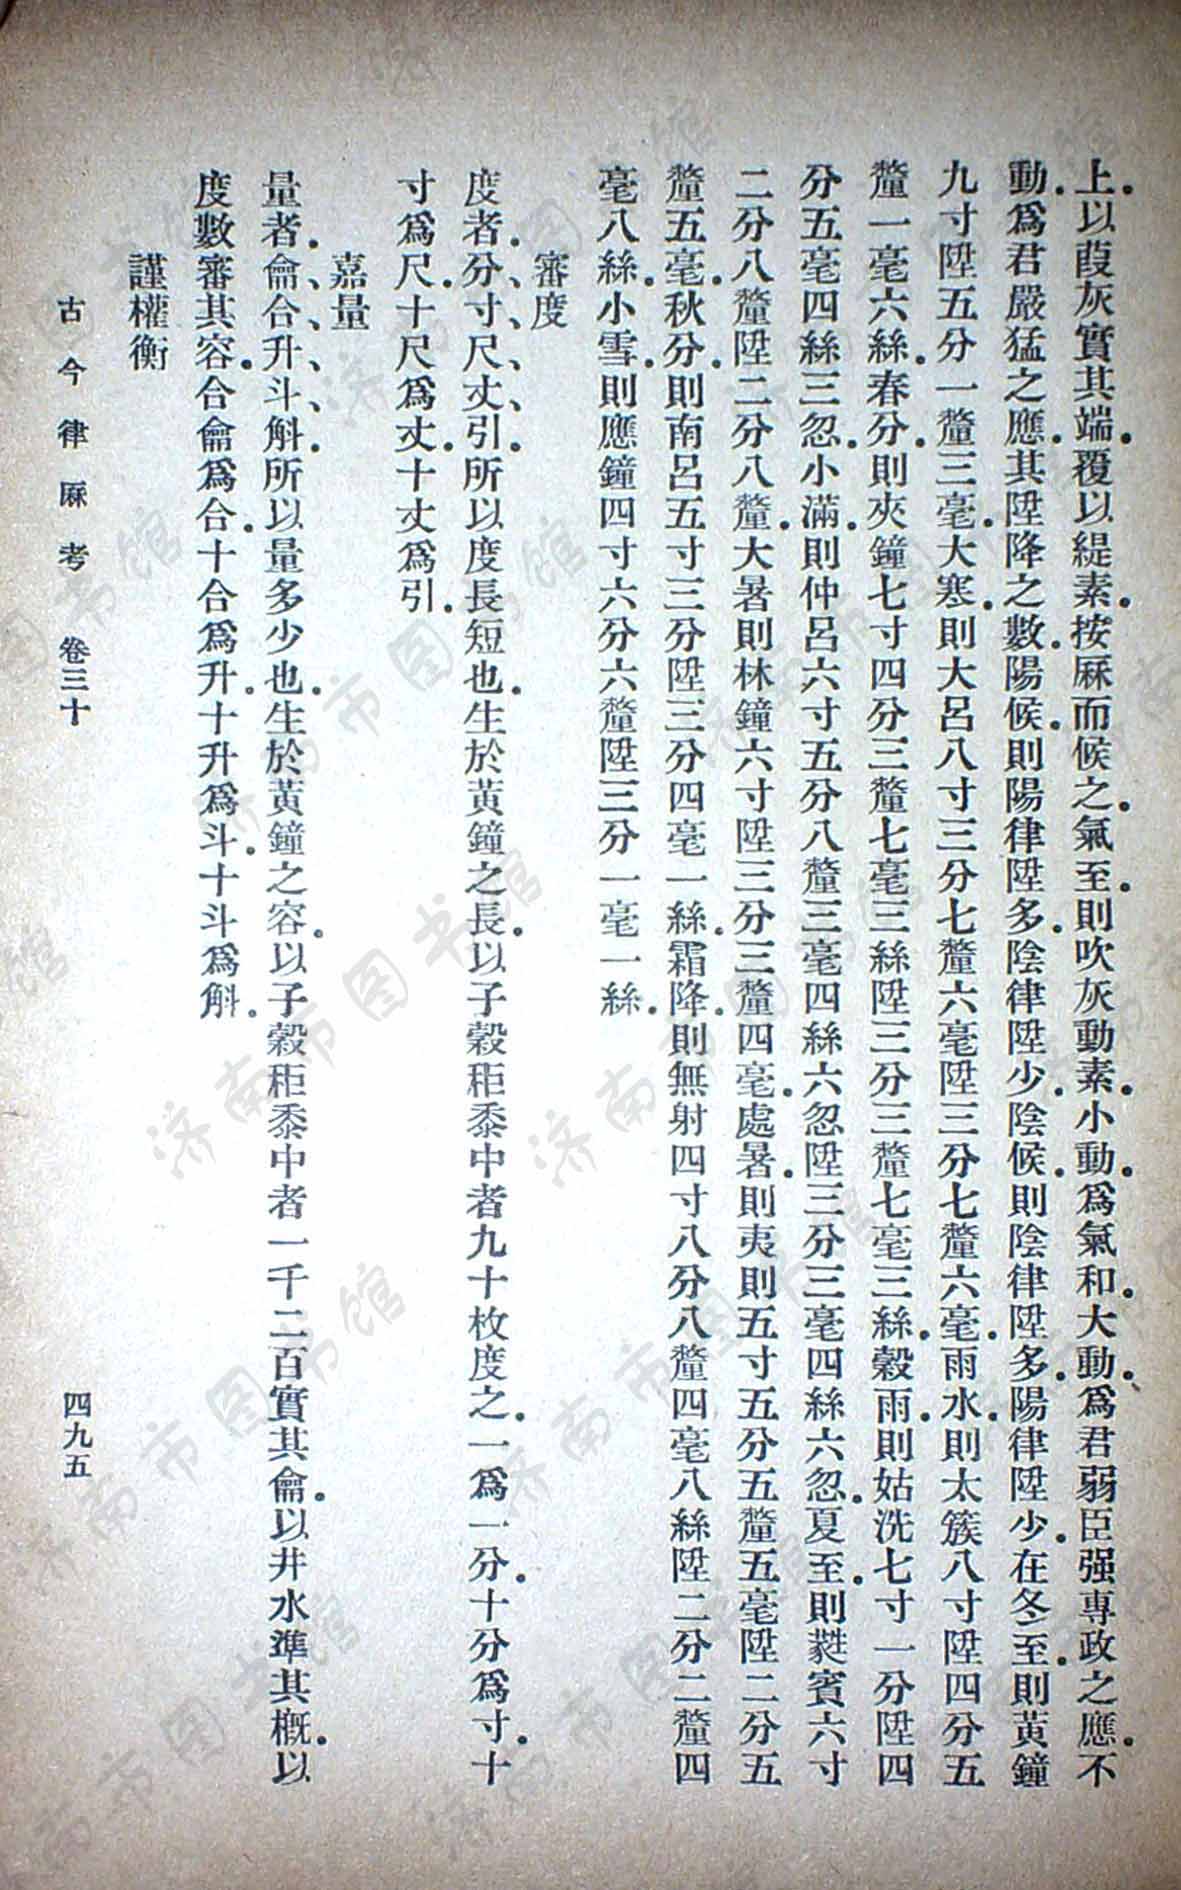 上。以葭灰實其端。覆以緹素。按厤而候之。氣至。則吹灰動素。小動。爲氣和。大動。爲君弱臣强專政之應。不
動。爲君嚴猛之應。其陞降之數。陽候。則陽律陞多。陰律陞少。陰候。則陰律陞多。陽律陞少。在冬至。則黃鐘
九寸陞五分一釐三毫。大寒。則大呂八寸三分七釐六毫陞三分七釐六毫。雨水。則太簇八寸陞四分五
釐一毫六絲。春分。則夾鐘七寸四分三釐七毫三絲陞三分三釐七毫三絲。穀雨。則姑洗七寸一分陞四
分五毫四絲三忽。小滿。則仲呂六寸五分八釐三毫四絲六忽陞三分三毫四絲六忽。夏至。則蕤賓六寸
二分八釐陞二分八釐。大暑則林鐘六寸陞三分三釐四毫。處暑。則夷則五寸五分五釐五毫陞二分五
釐五毫。秋分。則南呂五寸三分陞三分四毫一絲。霜降。則無射四寸八分八釐四毫八絲陞二分二釐四
毫八絲。小雪。則應鐘四寸六分六釐陞三分一毫一絲。
審度
度者。分、寸、尺、丈、引。所以度長短也。生於黃鐘之長。以子穀秬黍中者九十枚度之。一爲一分。十分爲寸。十
寸爲尺。十尺爲丈。十丈爲引。
嘉量
量者。龠、合、升、斗、斛。所以量多少也。生於黃鐘之容。以子穀秬黍中者一千二百實其龠。以井水準其槪。以
度數審其容。合龠爲合。十合爲升。十升爲斗。十斗爲斛。
謹權衡
古今律厤考 卷三十 四九五
济南市图书馆